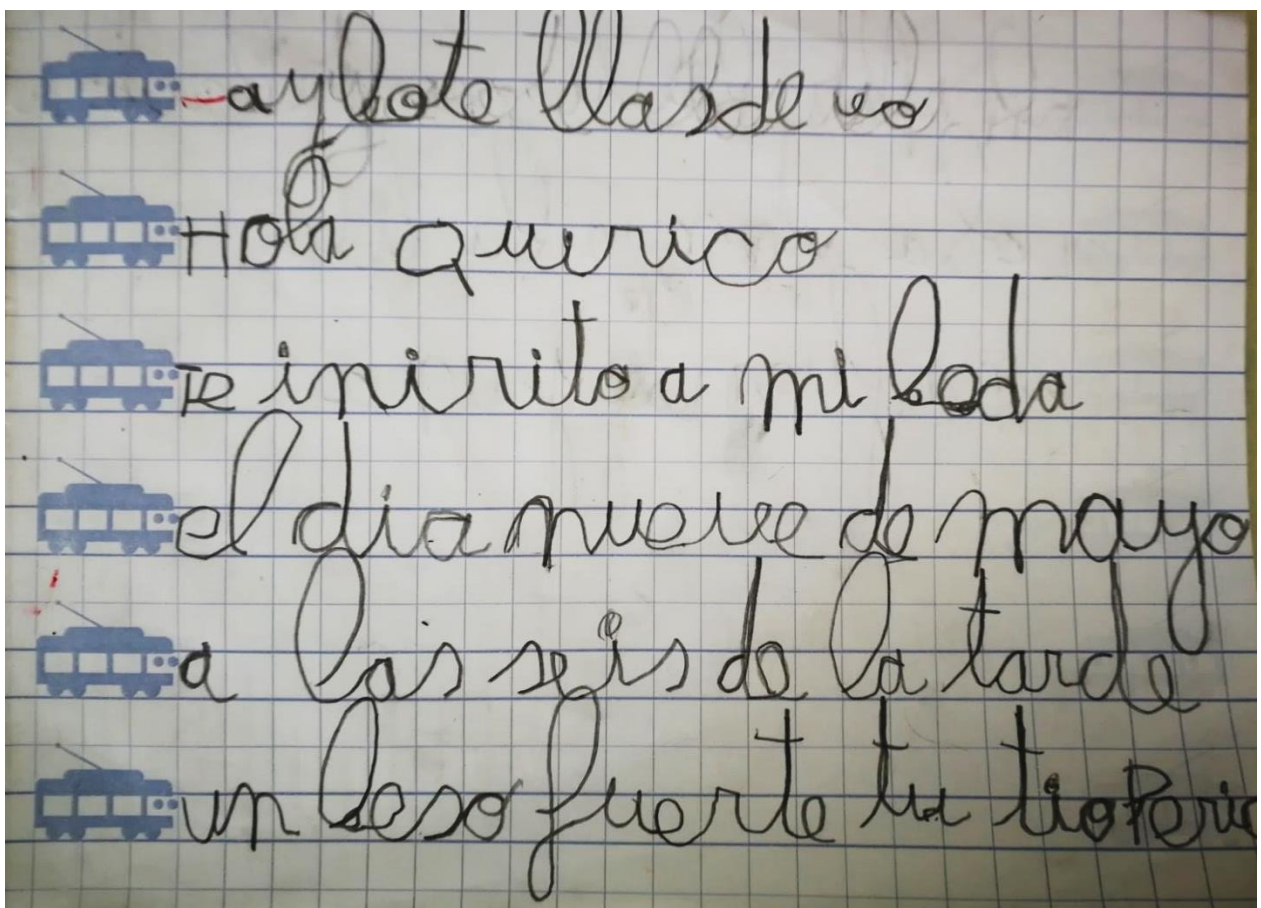 ay bote llas de vo
Hola Querico
Te inirito a mi boda
el dia nueve de mayo
a las seis de la tarde
un beso fuerte tu tio Peric